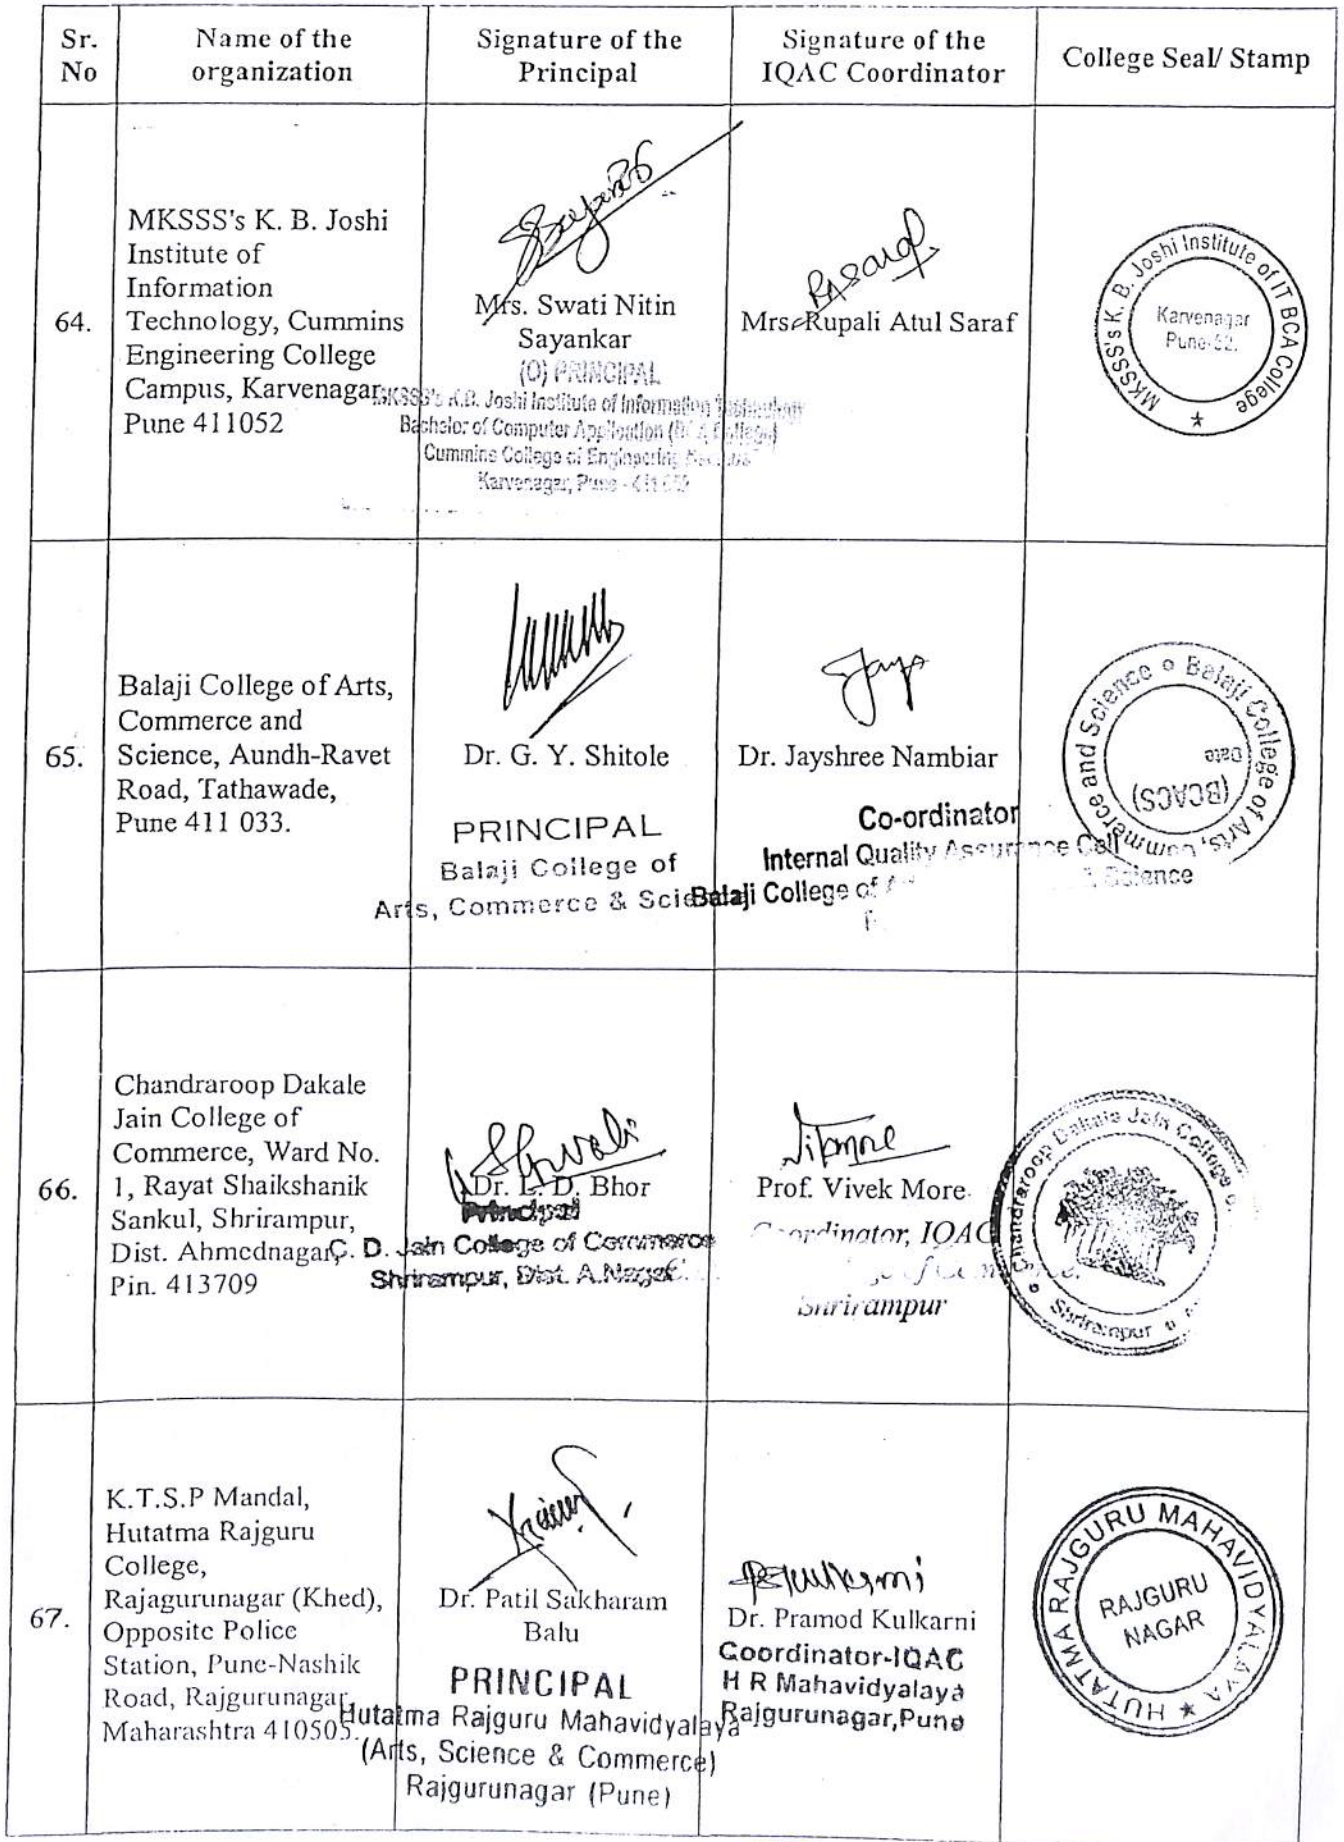 Sr. No
Name of the organization
Signature of the Principal
Signature of the IQAC Coordinator
College Seal/ Stamp
64.
MKSSS's K. B. Joshi
Institute of
Information
Technology, Cummins
Engineering College
Campus, Karvenagar,
Pune 411052
Mrs. Swati Nitin
Sayankar
(O) PRINCIPAL
MKSSS's K.B. Joshi Institute of Information Technology
Bachelor of Computer Application (BCA College)
Cummins College of Engineering
Karvenagar, Pune - 411 052
Mrs. Rupali Atul Saraf
MKSSS's K. B. Joshi Institute of IT BCA College
Karvenagar
Pune-52.
65.
Balaji College of Arts,
Commerce and
Science, Aundh-Ravet
Road, Tathawade,
Pune 411 033.
Dr. G. Y. Shitole
PRINCIPAL
Balaji College of
Arts, Commerce & Science
Jaya
Dr. Jayshree Nambiar
Co-ordinator
Internal Quality Assurance Cell
Balaji College of
& Science
Balaji College of Arts, Commerce and Science
Date
(BCACS)
66.
Chandraroop Dakale
Jain College of
Commerce, Ward No.
1, Rayat Shaikshanik
Sankul, Shrirampur,
Dist. Ahmednagar,
Pin. 413709
Dr. L. D. Bhor
Principal
C. D. Jain College of Commerce
Shrirampur, Dist. A.Nagar.
Prof. Vivek More
Coordinator, IQAC
Shrirampur
Chandraroop Dakale Jain College
Shrirampur
67.
K.T.S.P Mandal,
Hutatma Rajguru
College,
Rajagurunagar (Khed),
Opposite Police
Station, Pune-Nashik
Road, Rajgurunagar,
Maharashtra 410505.
Dr. Patil Sakharam
Balu
PRINCIPAL
Hutatma Rajguru Mahavidyalaya
(Arts, Science & Commerce)
Rajgurunagar (Pune)
PSKulkarni
Dr. Pramod Kulkarni
Coordinator-IQAC
H R Mahavidyalaya
Rajgurunagar,Pune
HUTATMA RAJGURU MAHAVIDYALAYA
RAJGURU
NAGAR